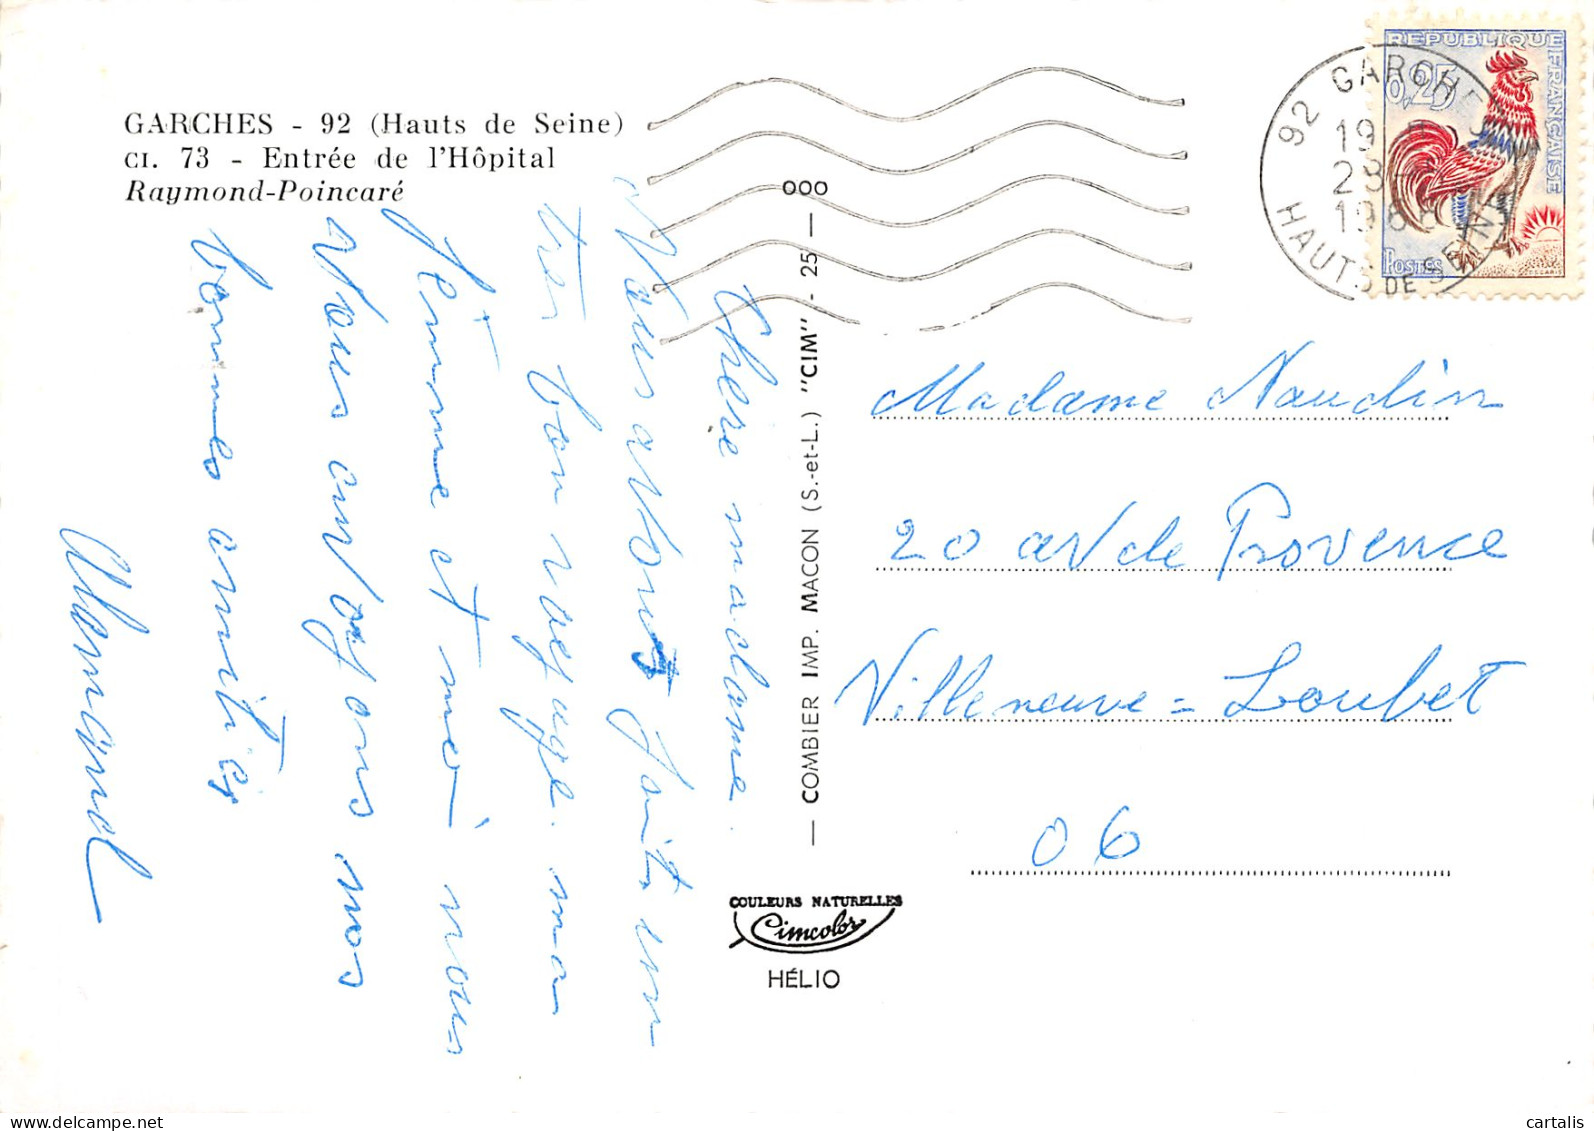 GARCHES - 92 (Hauts de Seine)
CI. 73 - Entrée de l'Hôpital
Raymond-Poincaré
Chere madame.
Nous avons fait un
tres bon voyage. ma
femme et moi nous
Vous envoyons nos
bonnes amitiés
COMBIER IMP. MACON (S.-et-L.) "CIM" - 25
000
COULEURS NATURELLES
Cimcolor
HÉLIO
92 GARCHES
19
28
196
HAUTS DE SEINE
REPUBLIQUE FRANÇAISE
0,25
POSTES
Madame Naudin
20 av de Provence
Villeneuve=Loubet
06
delcampe.net
cartalis